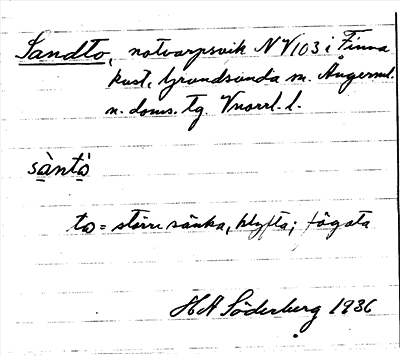 Sandto, notvarpsvik N V 103 i Finna
kust, Grundsunda sn. Ångerml.
n. doms. tg. Vnorrl. l.
sàntò
to = större sänka, klyfta; fågata
HA Söderberg 1936